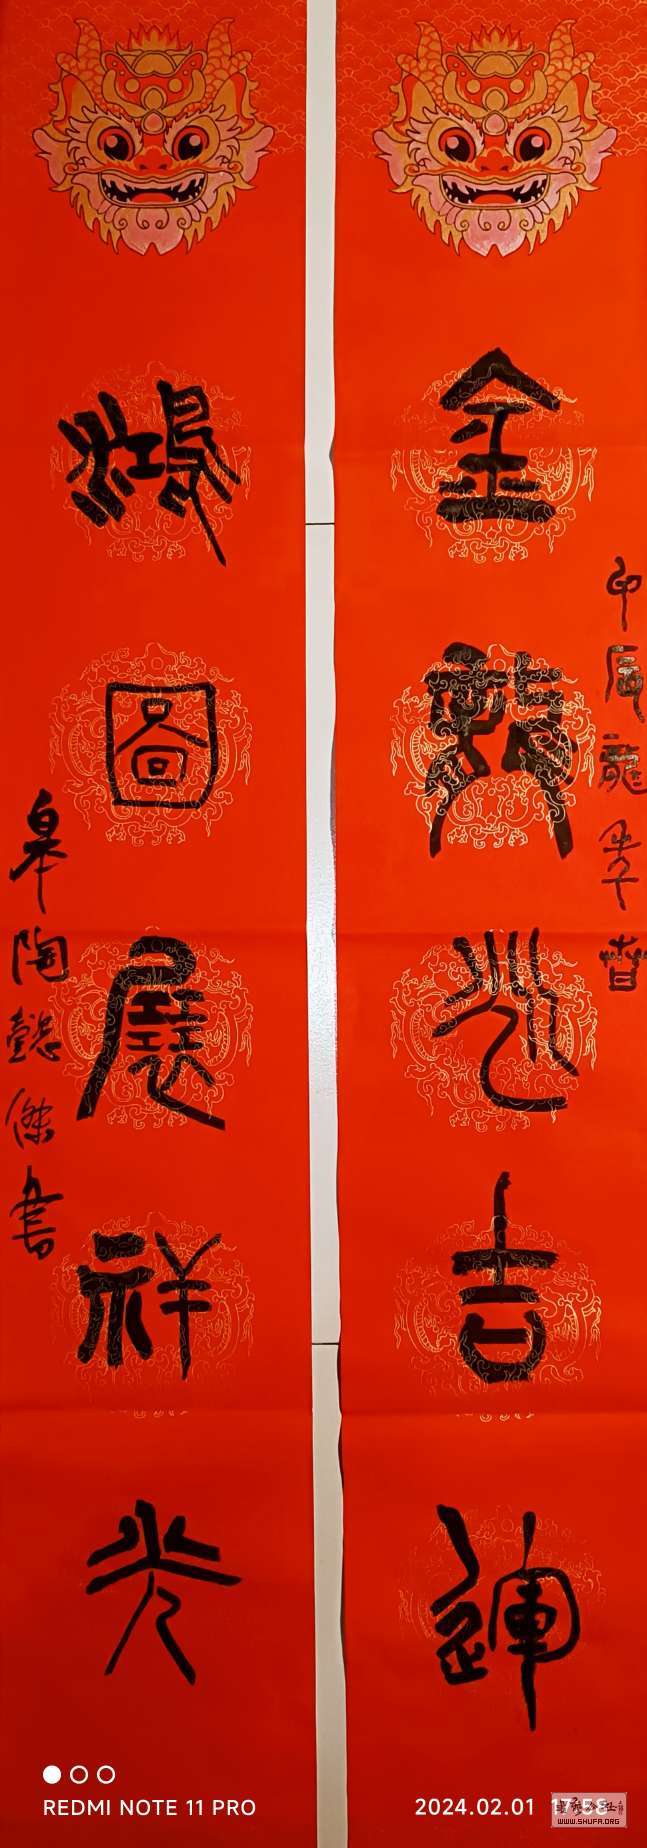 金龍兆吉運
甲辰龍年春
鴻圖展祥光
皋陶懿傑書
REDMI NOTE 11 PRO
2024.02.01 17:58
WWW.SHUFA.ORG